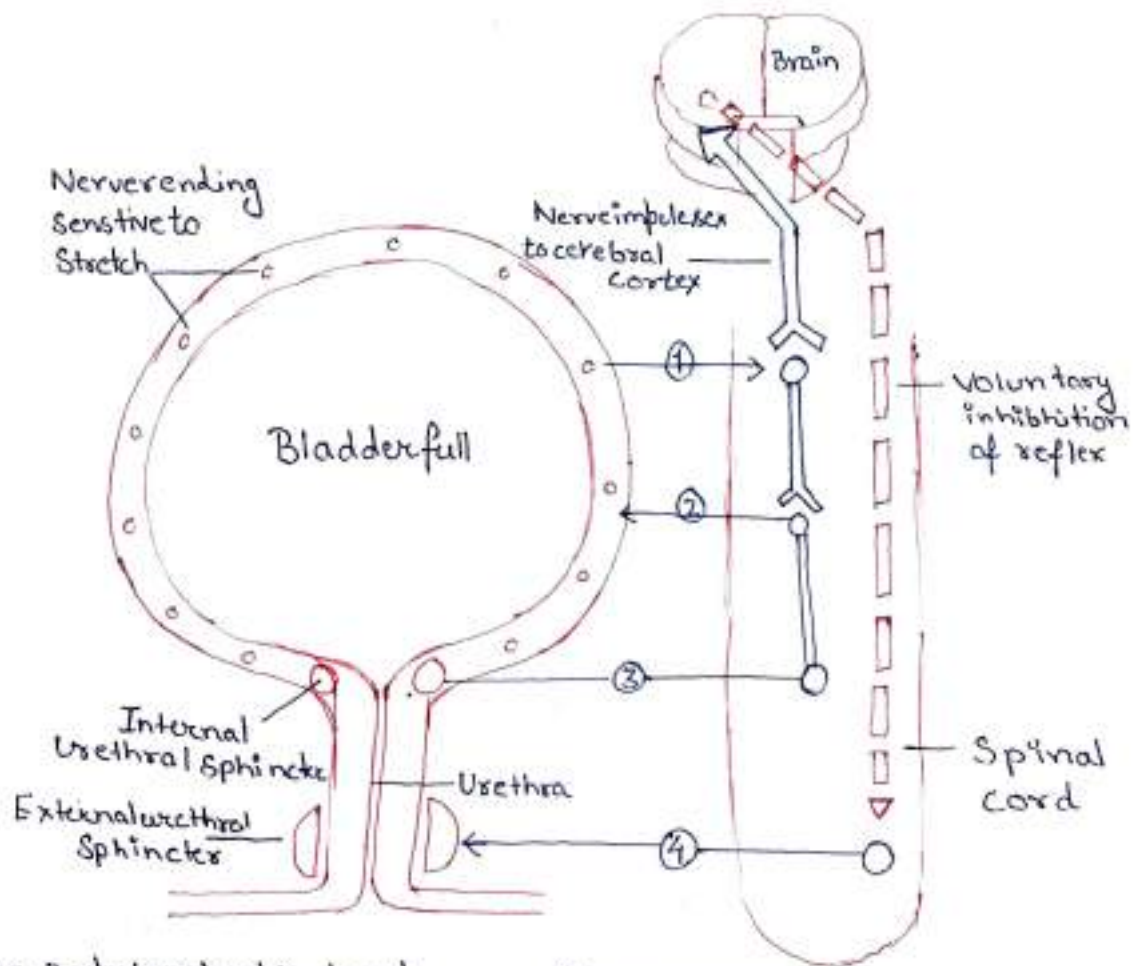 Brain
Nerverending
senstiveto
Stretch
Nerveimpelesex
tocerebral
cortex
1
Voluntary
inhibhition
of reflex
Bladderfull
2
3
Internal
Urethral Sphincte
Urethra
Spinal
cord
Externalurethral
Sphincter
4